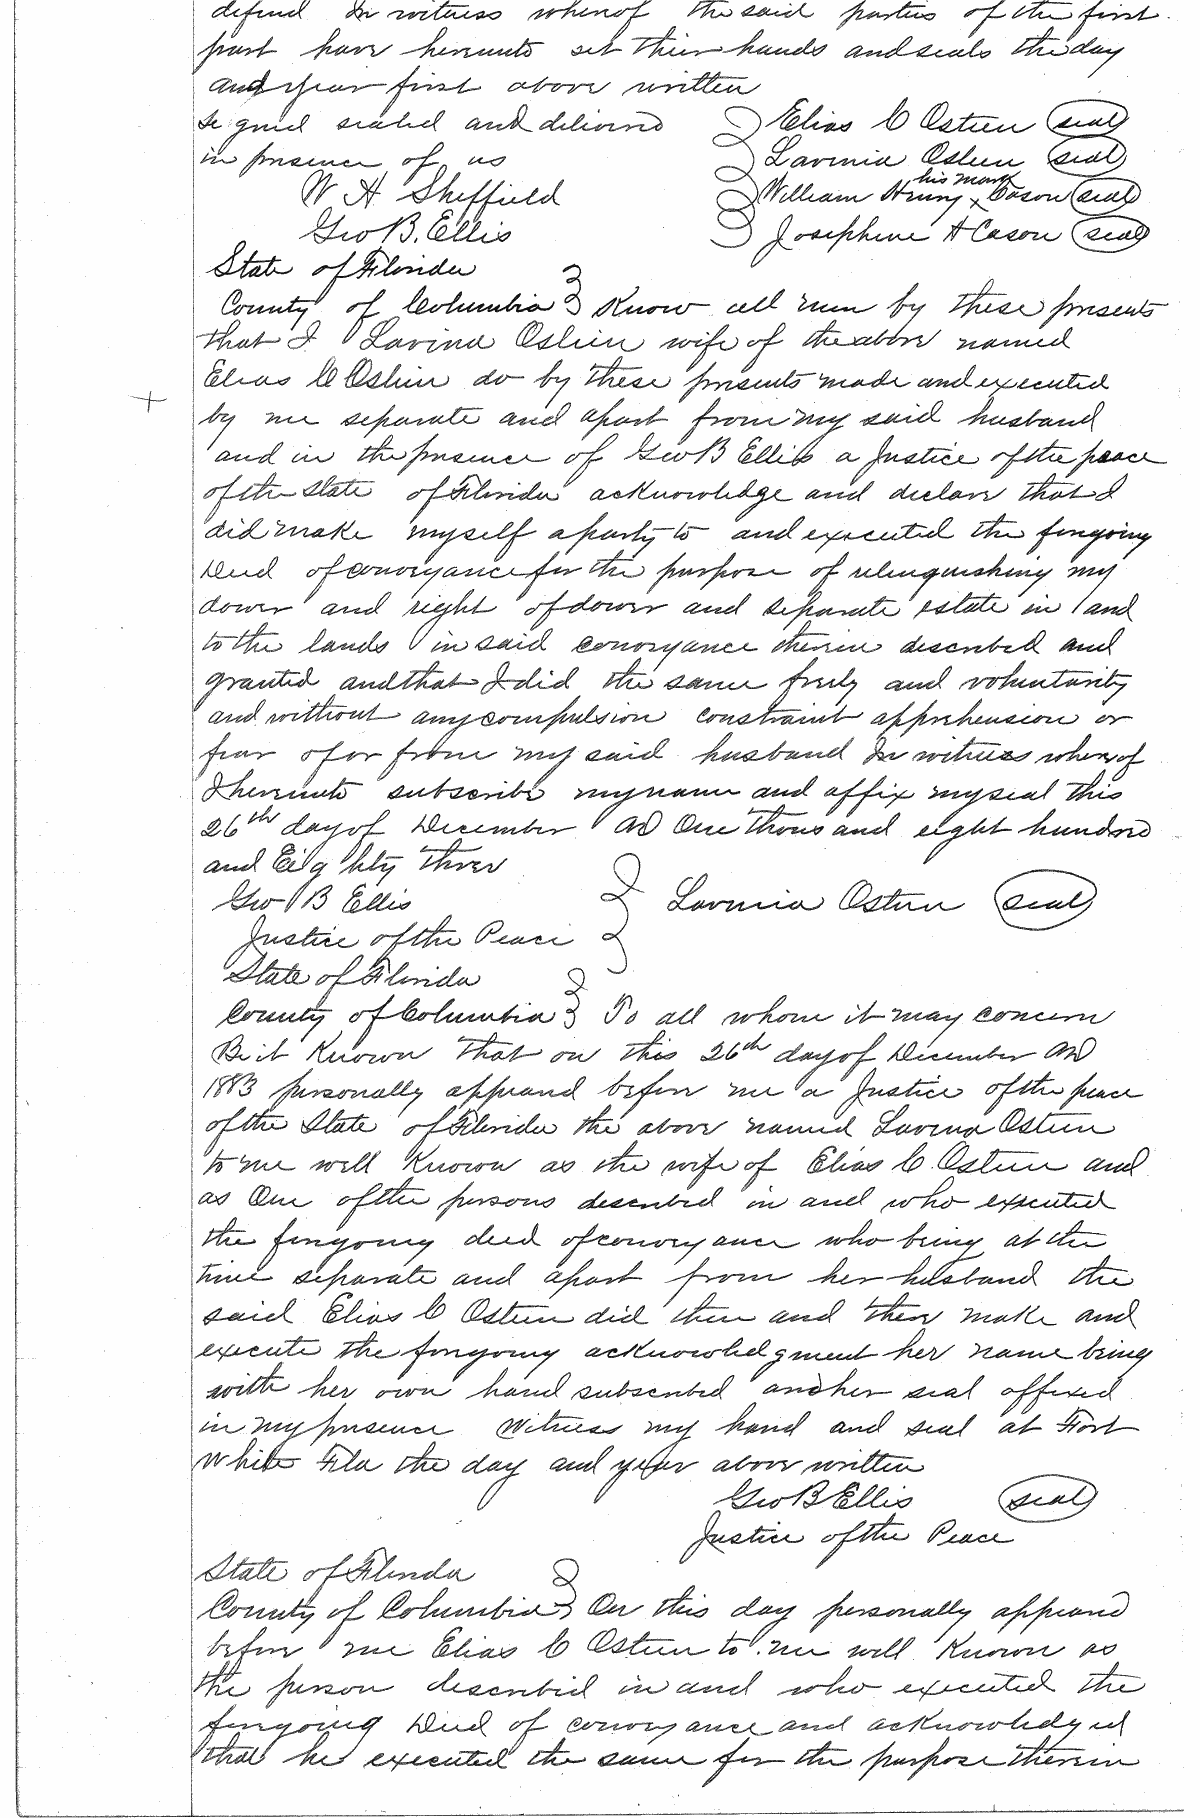 defend In witness whereof the said parties of the first
part have hereunto set their hands and seals the day
and year first above written
Signed sealed and delivered Elias C Osteen (seal)
in presence of us Lavinia Osteen (seal)
W H Sheffield William Henry his mark x Cason (seal)
Geo B. Ellis Josephine A Cason (seal)
State of Florida
County of Columbia Know all men by these presents
that I Lavina Osteen wife of the above named
Elias C Osteen do by these presents made and executed
by me separate and apart from my said husband
and in the presence of Geo B Ellis a Justice of the peace
of the State of Florida acknowledge and declare that I
did make myself a party to and executed the foregoing
Deed of conveyance for the purpose of relinquishing my
dower and right of dower and separate estate in and
to the lands in said conveyance therein described and
granted and that I did the same freely and voluntarily
and without any compulsion constraint apprehension or
fear of or from my said husband In witness whereof
I hereunto subscribe my name and affix my seal this
26th day of December AD One thousand eight hundred
and Eighty three
Geo B Ellis Lavinia Osteen (seal)
Justice of the Peace
State of Florida
County of Columbia To all whom it may concern
Be it Known that on this 26th day of December AD
1883 personally appeared before me a Justice of the peace
of the State of Florida the above named Lavina Osteen
to me well Known as the wife of Elias C. Osteen and
as One of the persons described in and who executed
the foregoing deed of conveyance who being at the
time separate and apart from her husband the
said Elias C Osteen did then and there make and
execute the foregoing acknowledgment her name being
with her own hand subscribed and her seal affixed
in my presence Witness my hand and seal at Fort
White Fla the day and year above written
Geo B Ellis (seal)
Justice of the Peace
State of Florida
County of Columbia On this day personally appeared
before me Elias C Osteen to me well Known as
the person described in and who executed the
foregoing Deed of conveyance and acknowledged
that he executed the same for the purpose therein